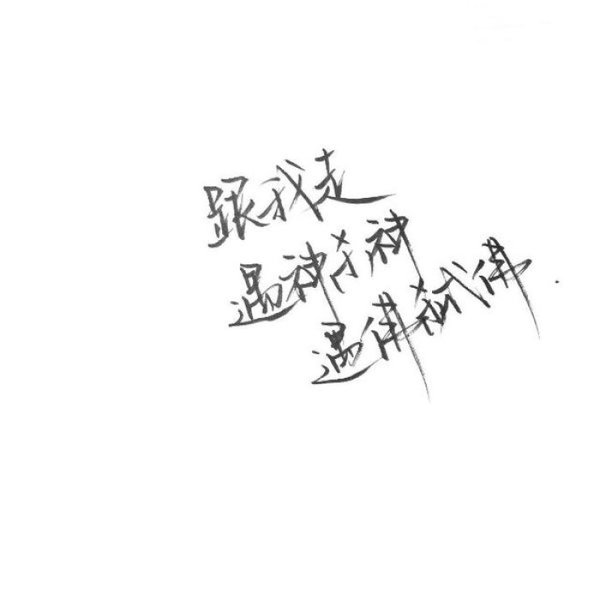 跟我走
遇神杀神
遇佛弑佛.